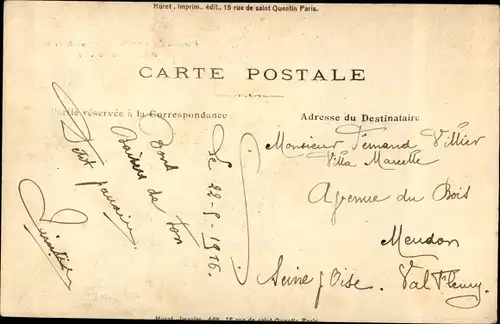 Muret, Imprim.. édit.. 15 rue de saint Quentin Paris.
CARTE POSTALE
Partie réservée à la Correspondance
Adresse du Destinataire
Le 22-9-1916.
Bons
baisers de ton
Petit
Monsieur Fernand Villier
Villa Marcelle
Avenue du Bois
Meudon
Seine & Oise. Val Fleury.
Muret, Imprim.. édit.. 15 rue de saint Quentin Paris.